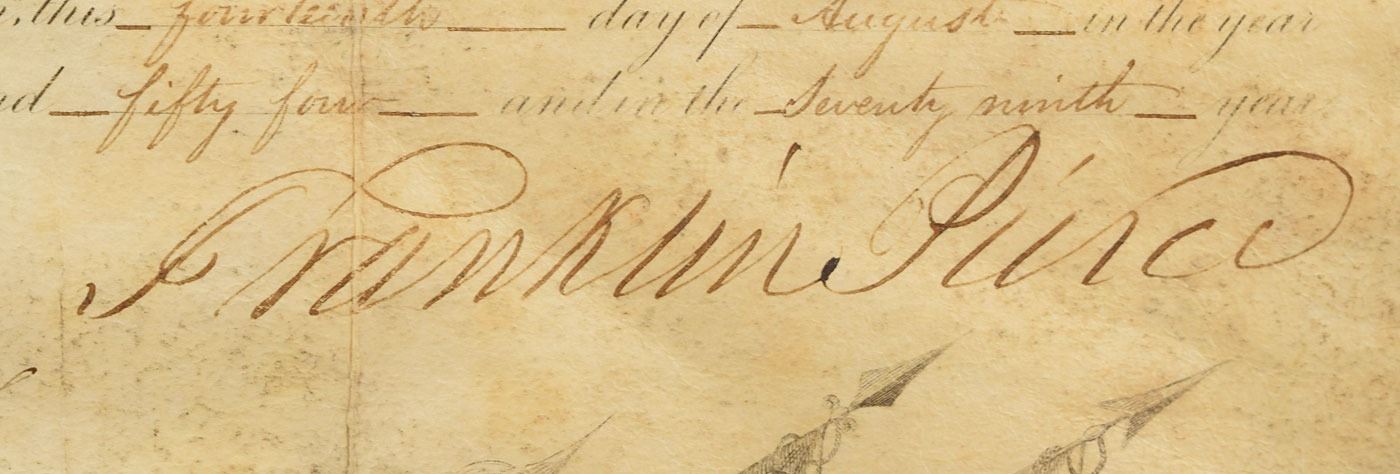 this fourteenth day of August in the year
fifty four and in the Seventy ninth year
Franklin Pierce